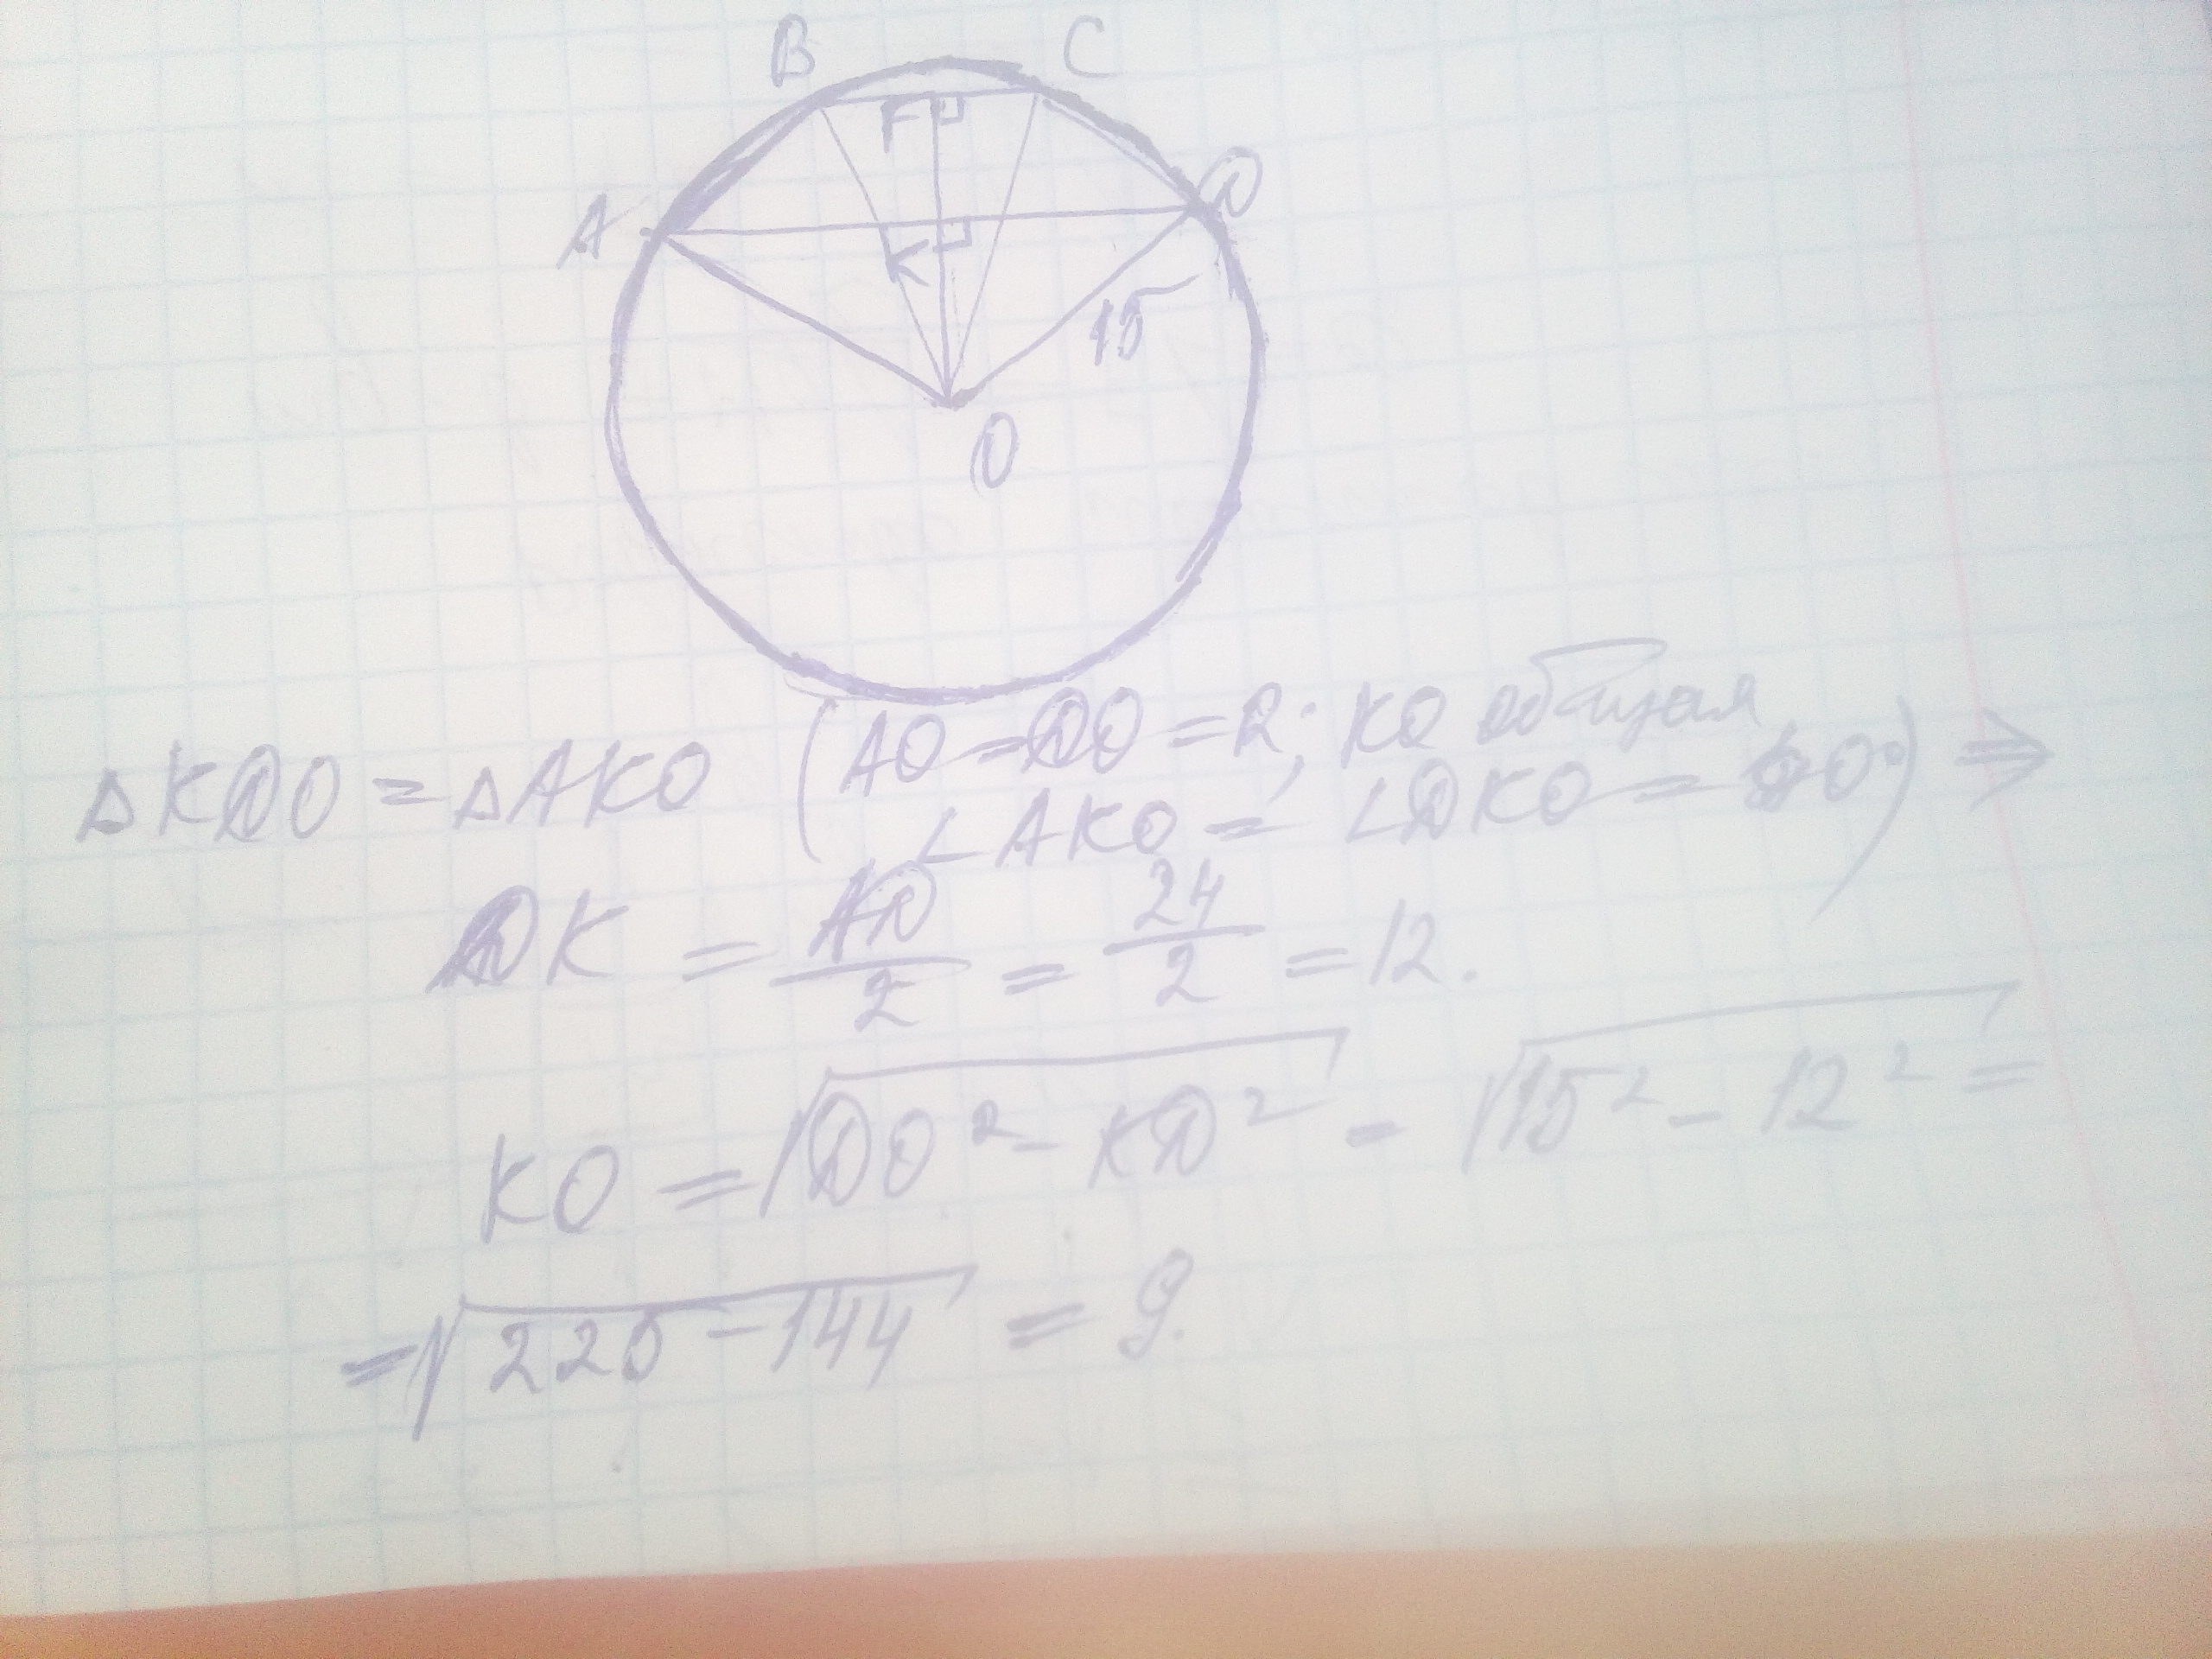 B C
F
A D
K
15
O
△KDO = △AKO (AO = DO = R; KO общая
∠AKO = ∠DKO = 90°) ⇒
DK = AD/2 = 24/2 = 12.
KO = √DO² - KD² = √15² - 12² =
= √225 - 144 = 9.